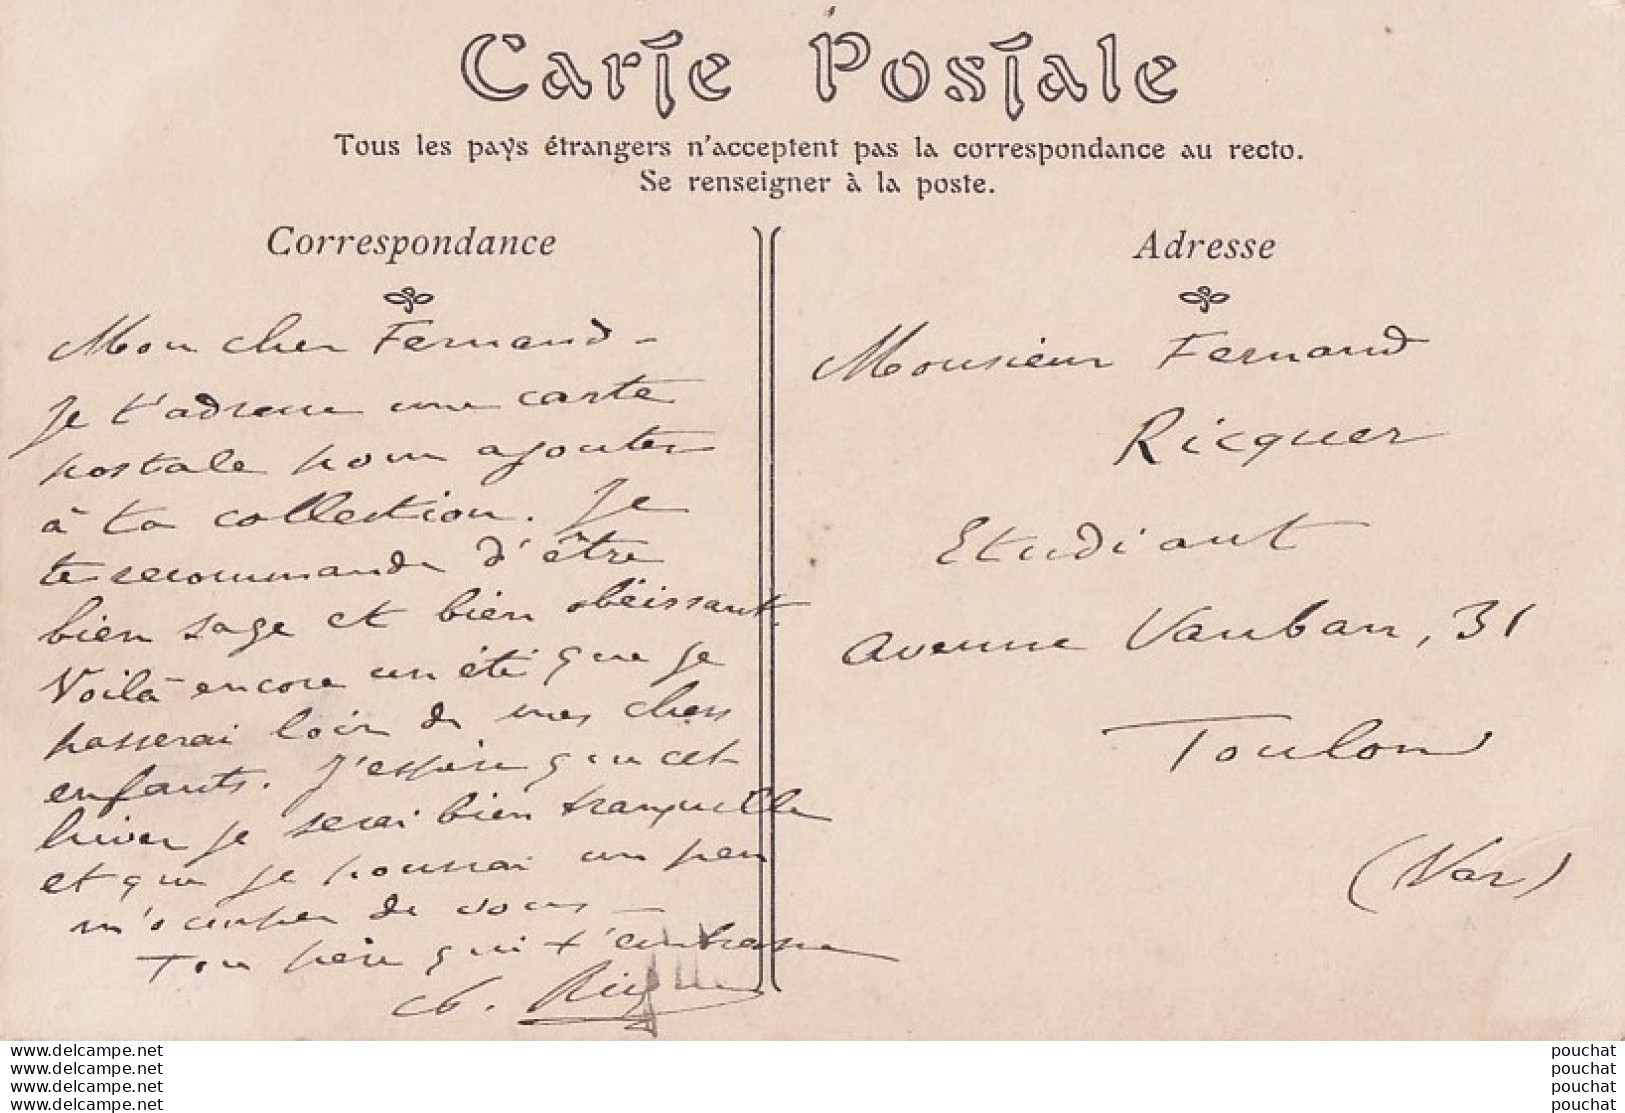 Carte Postale
Tous les pays étrangers n'acceptent pas la correspondance au recto.
Se renseigner à la poste.
Correspondance
Mon cher Fernand -
Je t'adresse une carte
postale pour ajouter
à ta collection. Je
te recommande d'être
bien sage et bien obéissant.
Voilà encore un été que je
passerai loin de mes chers
enfants. J'espère que cet
hiver je serai bien tranquille
et que je pourrai un peu
m'occuper de vous -
Ton père qui t'embrasse
Ch. Ricquer
Adresse
Monsieur Fernand
Ricquer
Etudiant
Avenue Vauban, 31
Toulon
(Var)
www.delcampe.net
www.delcampe.net
www.delcampe.net
www.delcampe.net
pouchat
pouchat
pouchat
pouchat